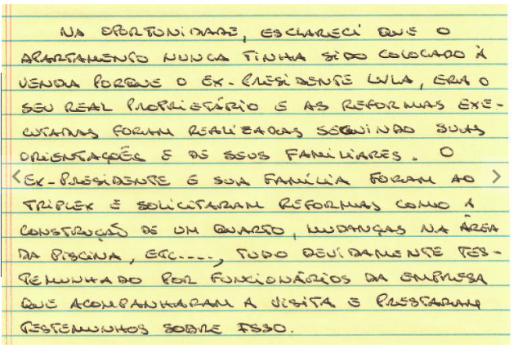 NA OPORTUNIDADE, ESCLARECI QUE O
APARTAMENTO NUNCA TINHA SIDO COLOCADO À
VENDA PORQUE O EX-PRESIDENTE LULA, ERA O
SEU REAL PROPRIETÁRIO E AS REFORMAS EXE-
CUTADAS FORAM REALIZADAS SEGUINDO SUAS
ORIENTAÇÕES E DE SEUS FAMILIARES. O
EX-PRESIDENTE E SUA FAMÍLIA FORAM AO
TRIPLEX E SOLICITARAM REFORMAS COMO A
CONSTRUÇÃO DE UM QUARTO, MUDANÇAS NA ÁREA
DA PISCINA, ETC...., TUDO DEVIDAMENTE TES-
TEMUNHADO POR FUNCIONÁRIOS DA EMPRESA
QUE ACOMPANHARAM A VISITA E PRESTARAM
TESTEMUNHOS SOBRE ISSO.